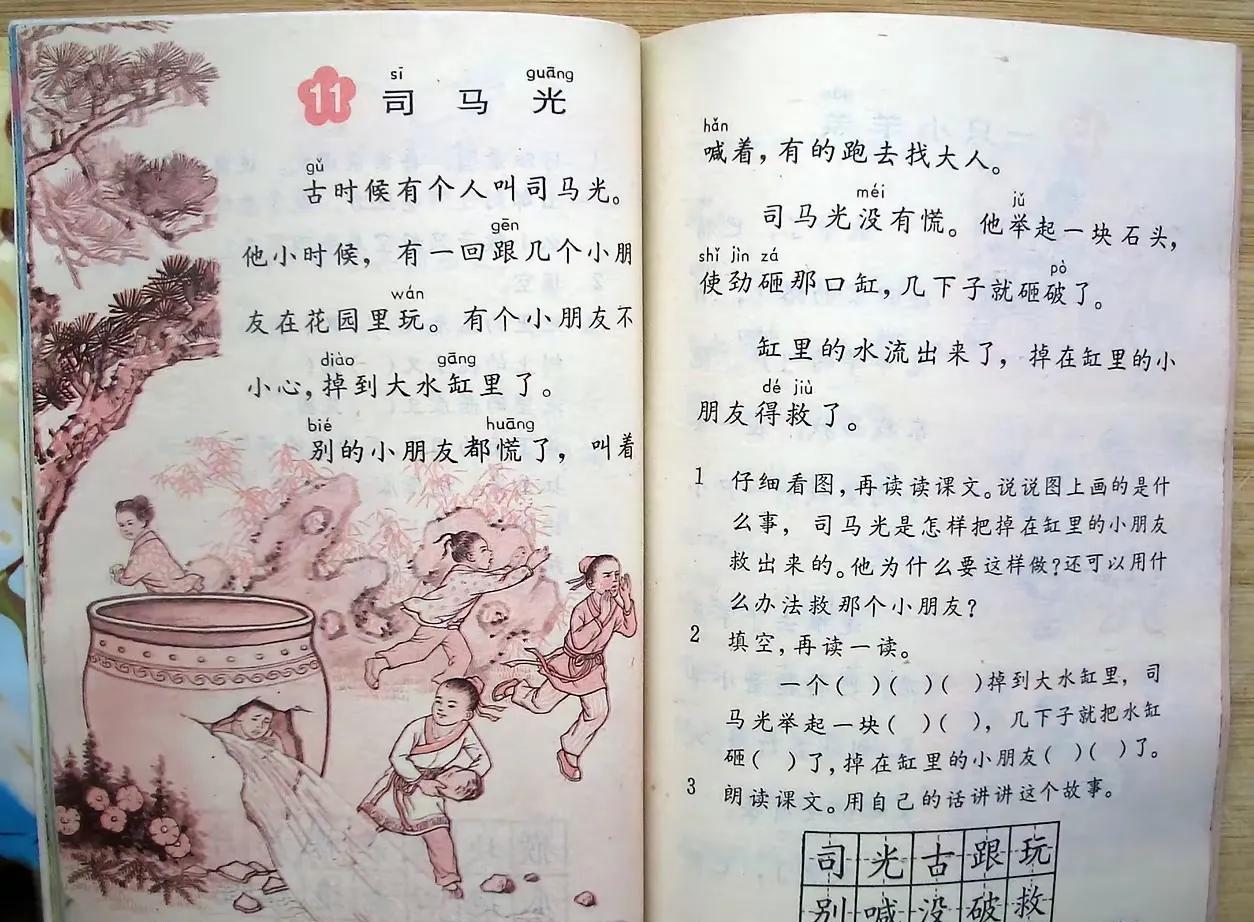 11 司马光
sī guāng
gǔ
古时候有个人叫司马光。
gēn
他小时候，有一回跟几个小朋
wán
友在花园里玩。有个小朋友不
diào gāng
小心，掉到大水缸里了。
bié huāng
别的小朋友都慌了，叫着
hǎn
喊着，有的跑去找大人。
méi jǔ
司马光没有慌。他举起一块石头，
shǐ jìn zá pò
使劲砸那口缸，几下子就砸破了。
缸里的水流出来了，掉在缸里的小
dé jiù
朋友得救了。
1 仔细看图，再读读课文。说说图上画的是什
么事，司马光是怎样把掉在缸里的小朋友
救出来的。他为什么要这样做?还可以用什
么办法救那个小朋友?
2 填空，再读一读。
一个( )( )( )掉到大水缸里，司
马光举起一块( )( )，几下子就把水缸
砸( )了，掉在缸里的小朋友( )( )了。
3 朗读课文。用自己的话讲讲这个故事。
司光古跟玩
别喊没破救